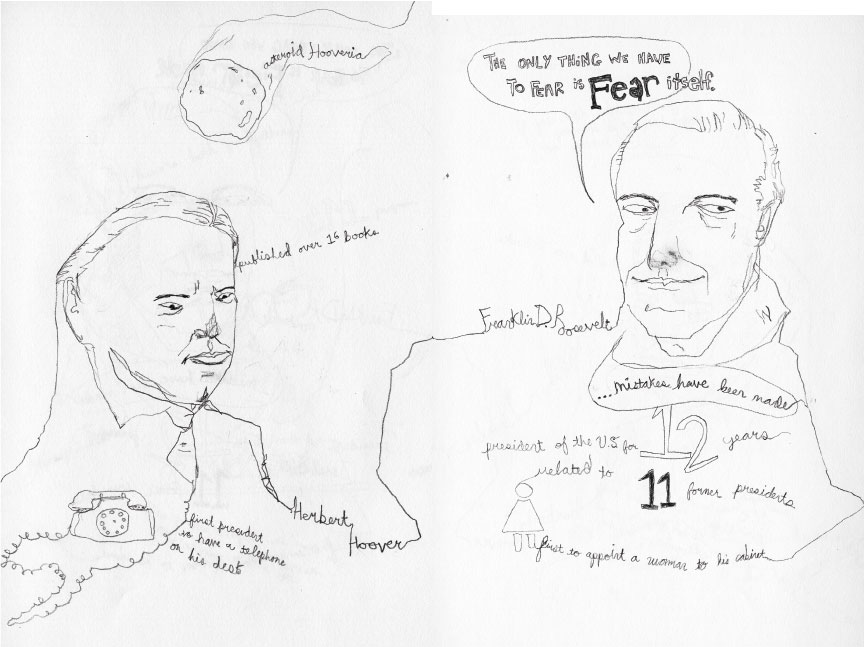 asteroid Hooveria
published over 16 books
first president
to have a telephone
on his desk
Herbert
Hoover
THE ONLY THING WE HAVE
TO FEAR is Fear itself.
Franklin D. Roosevelt
...mistakes have been made
president of the U.S for 12 years
related to 11 former presidents
first to appoint a woman to his cabinet